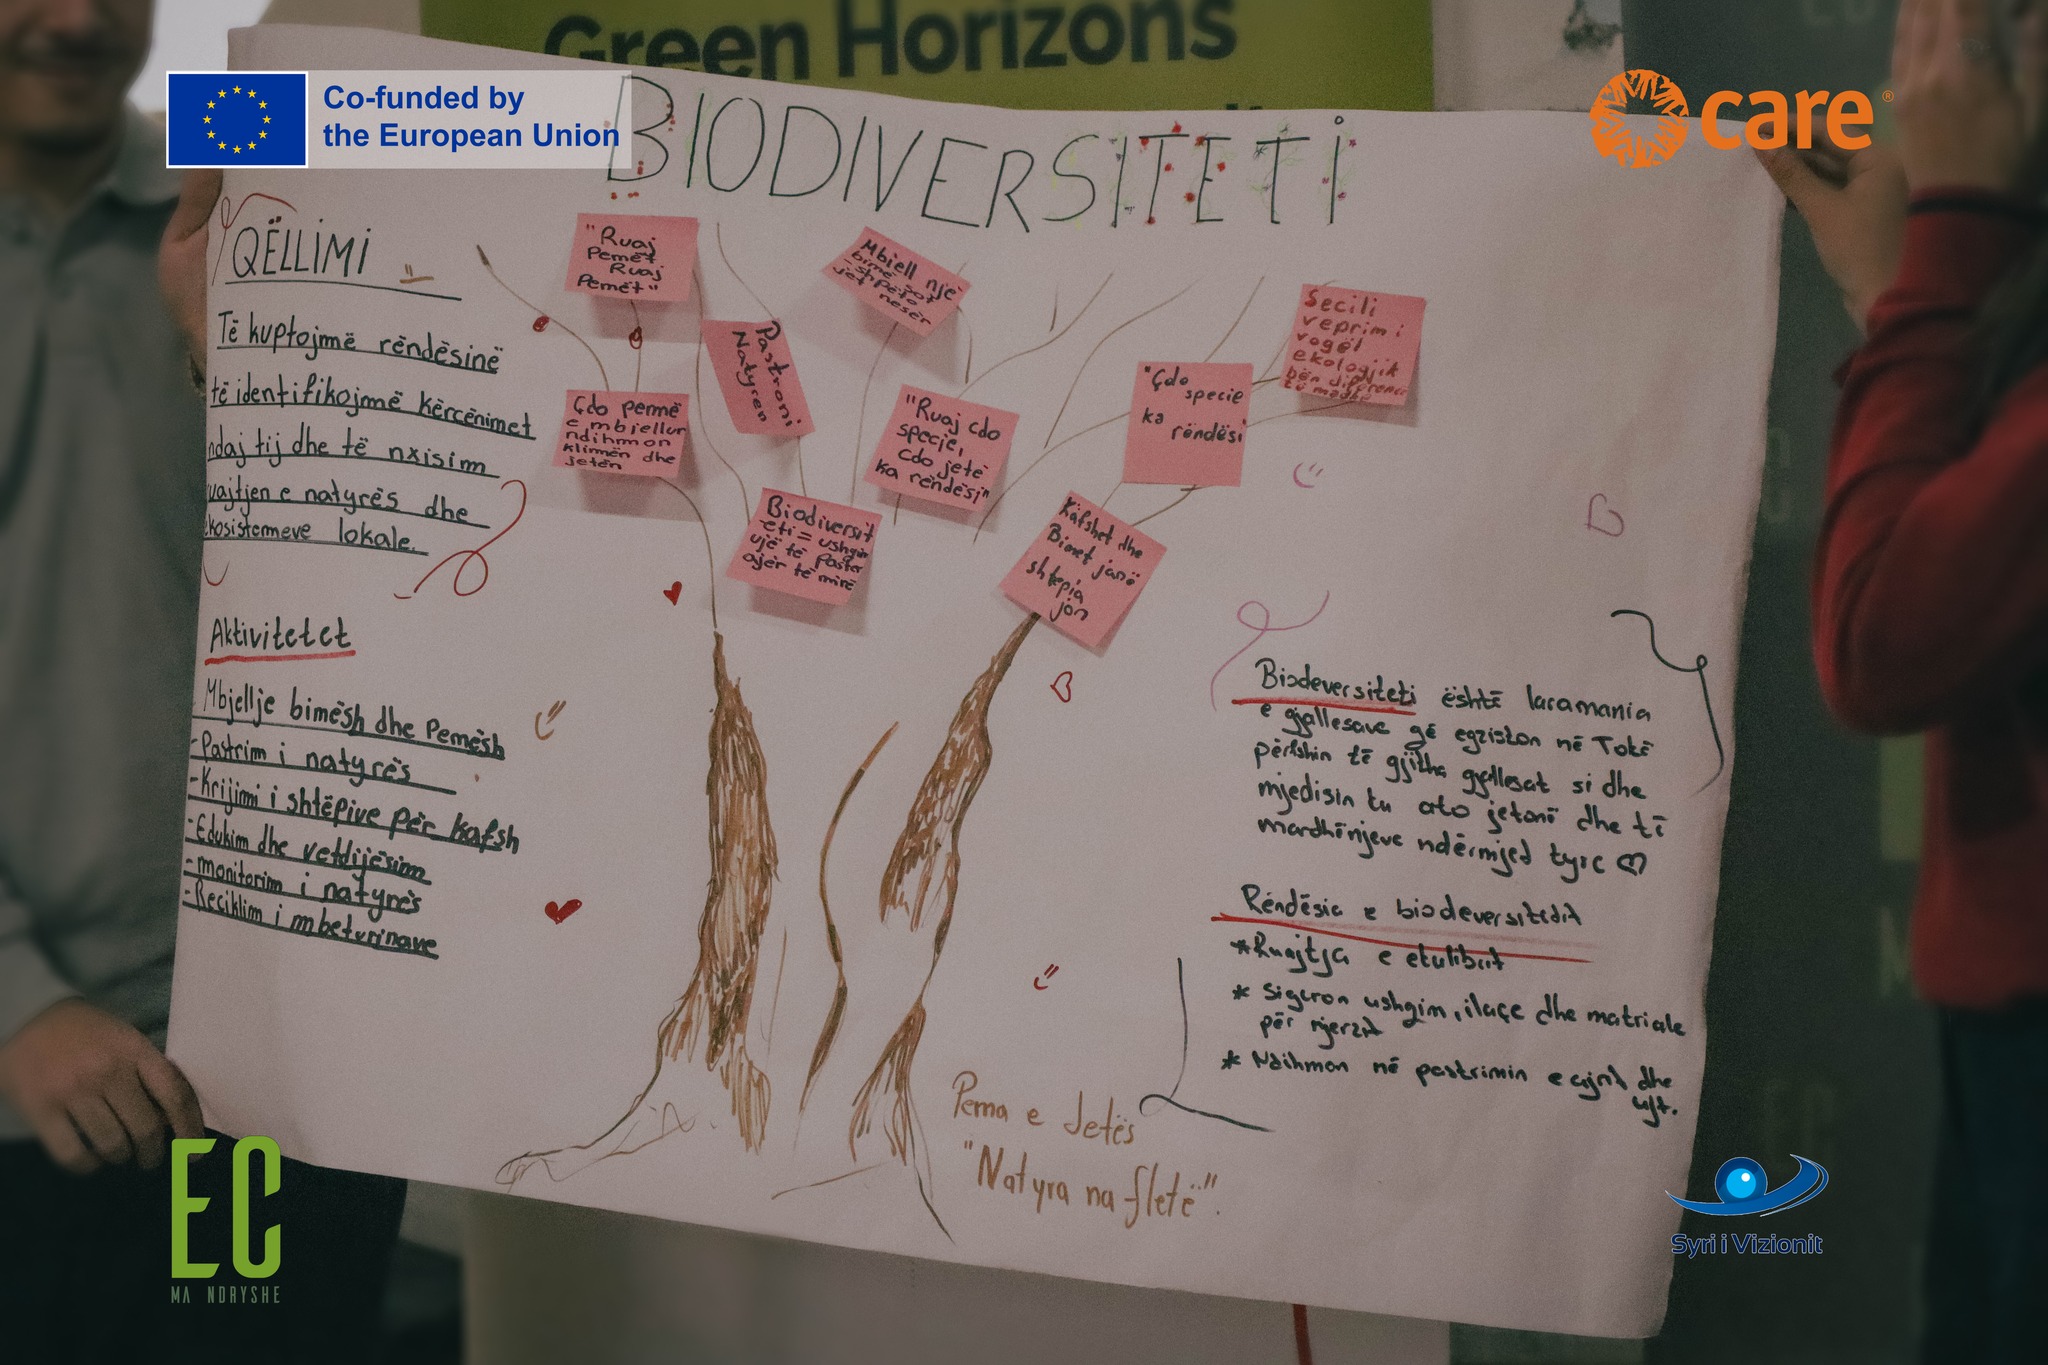 Green Horizons
Co-funded by
the European Union
care
BIODIVERSITETI
QËLLIMI
Të kuptojmë rëndësinë
të identifikojmë kërcënimet
ndaj tij dhe të nxisim
uajtjen e natyrës dhe
kosistemeve lokale.
Aktivitetet
Mbjellje bimësh dhe Pemësh
-Pastrim i natyrës
-Krijimi i shtëpive për kafsh
-Edukim dhe vetdijësim
-monitorim i natyrës
-Reciklim i mbeturinave
"Ruaj
Pemët
Ruaj
Pemët"
Mbiell një
bimë sot
shpëto
jet nesër
Secili
veprim i
vogël
ekologjik
bën
të madhe
Pastroni
Natyren
Çdo pemë
e mbjellur
ndihmon
klimën dhe
jetën
"Ruaj cdo
specje,
cdo jetë
ka rëndësi"
"Çdo
specie
ka
rëndësi
Biodiversit
eti = ushqim
ujë të paster
ajër të mirë
Kafshet dhe
Bimet janë
shtëpia
jon
Biodeversiteti është laramania
e gjallesave që egziston në Tokë
përfshin të gjitha gjallesat si dhe
mjedisin ku ato jetonë dhe të
mardhënjeve ndërmjed tyre
Rëndësia e biodeversitetit
*Ruajtja e etulibrit
* Sigeron ushqim, ilaçe dhe matriale
për njerzit
* Ndihmon në pastrimin e ajrit dhe
ujt.
Pema e Jetës
"Natyra na fletë".
EC
MA NDRYSHE
Syri i Vizionit